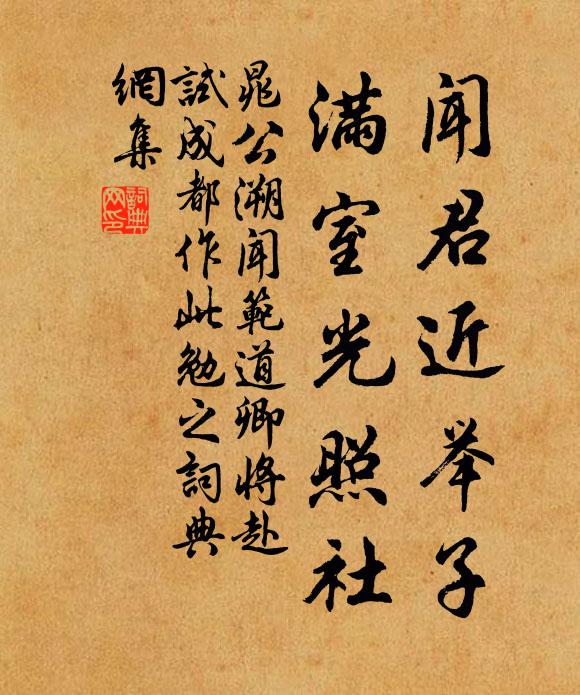 闻君近举子
满室光照社
晁公溯闻範道卿将赴
試成都作此勉之詞典
網集
詞典
网印